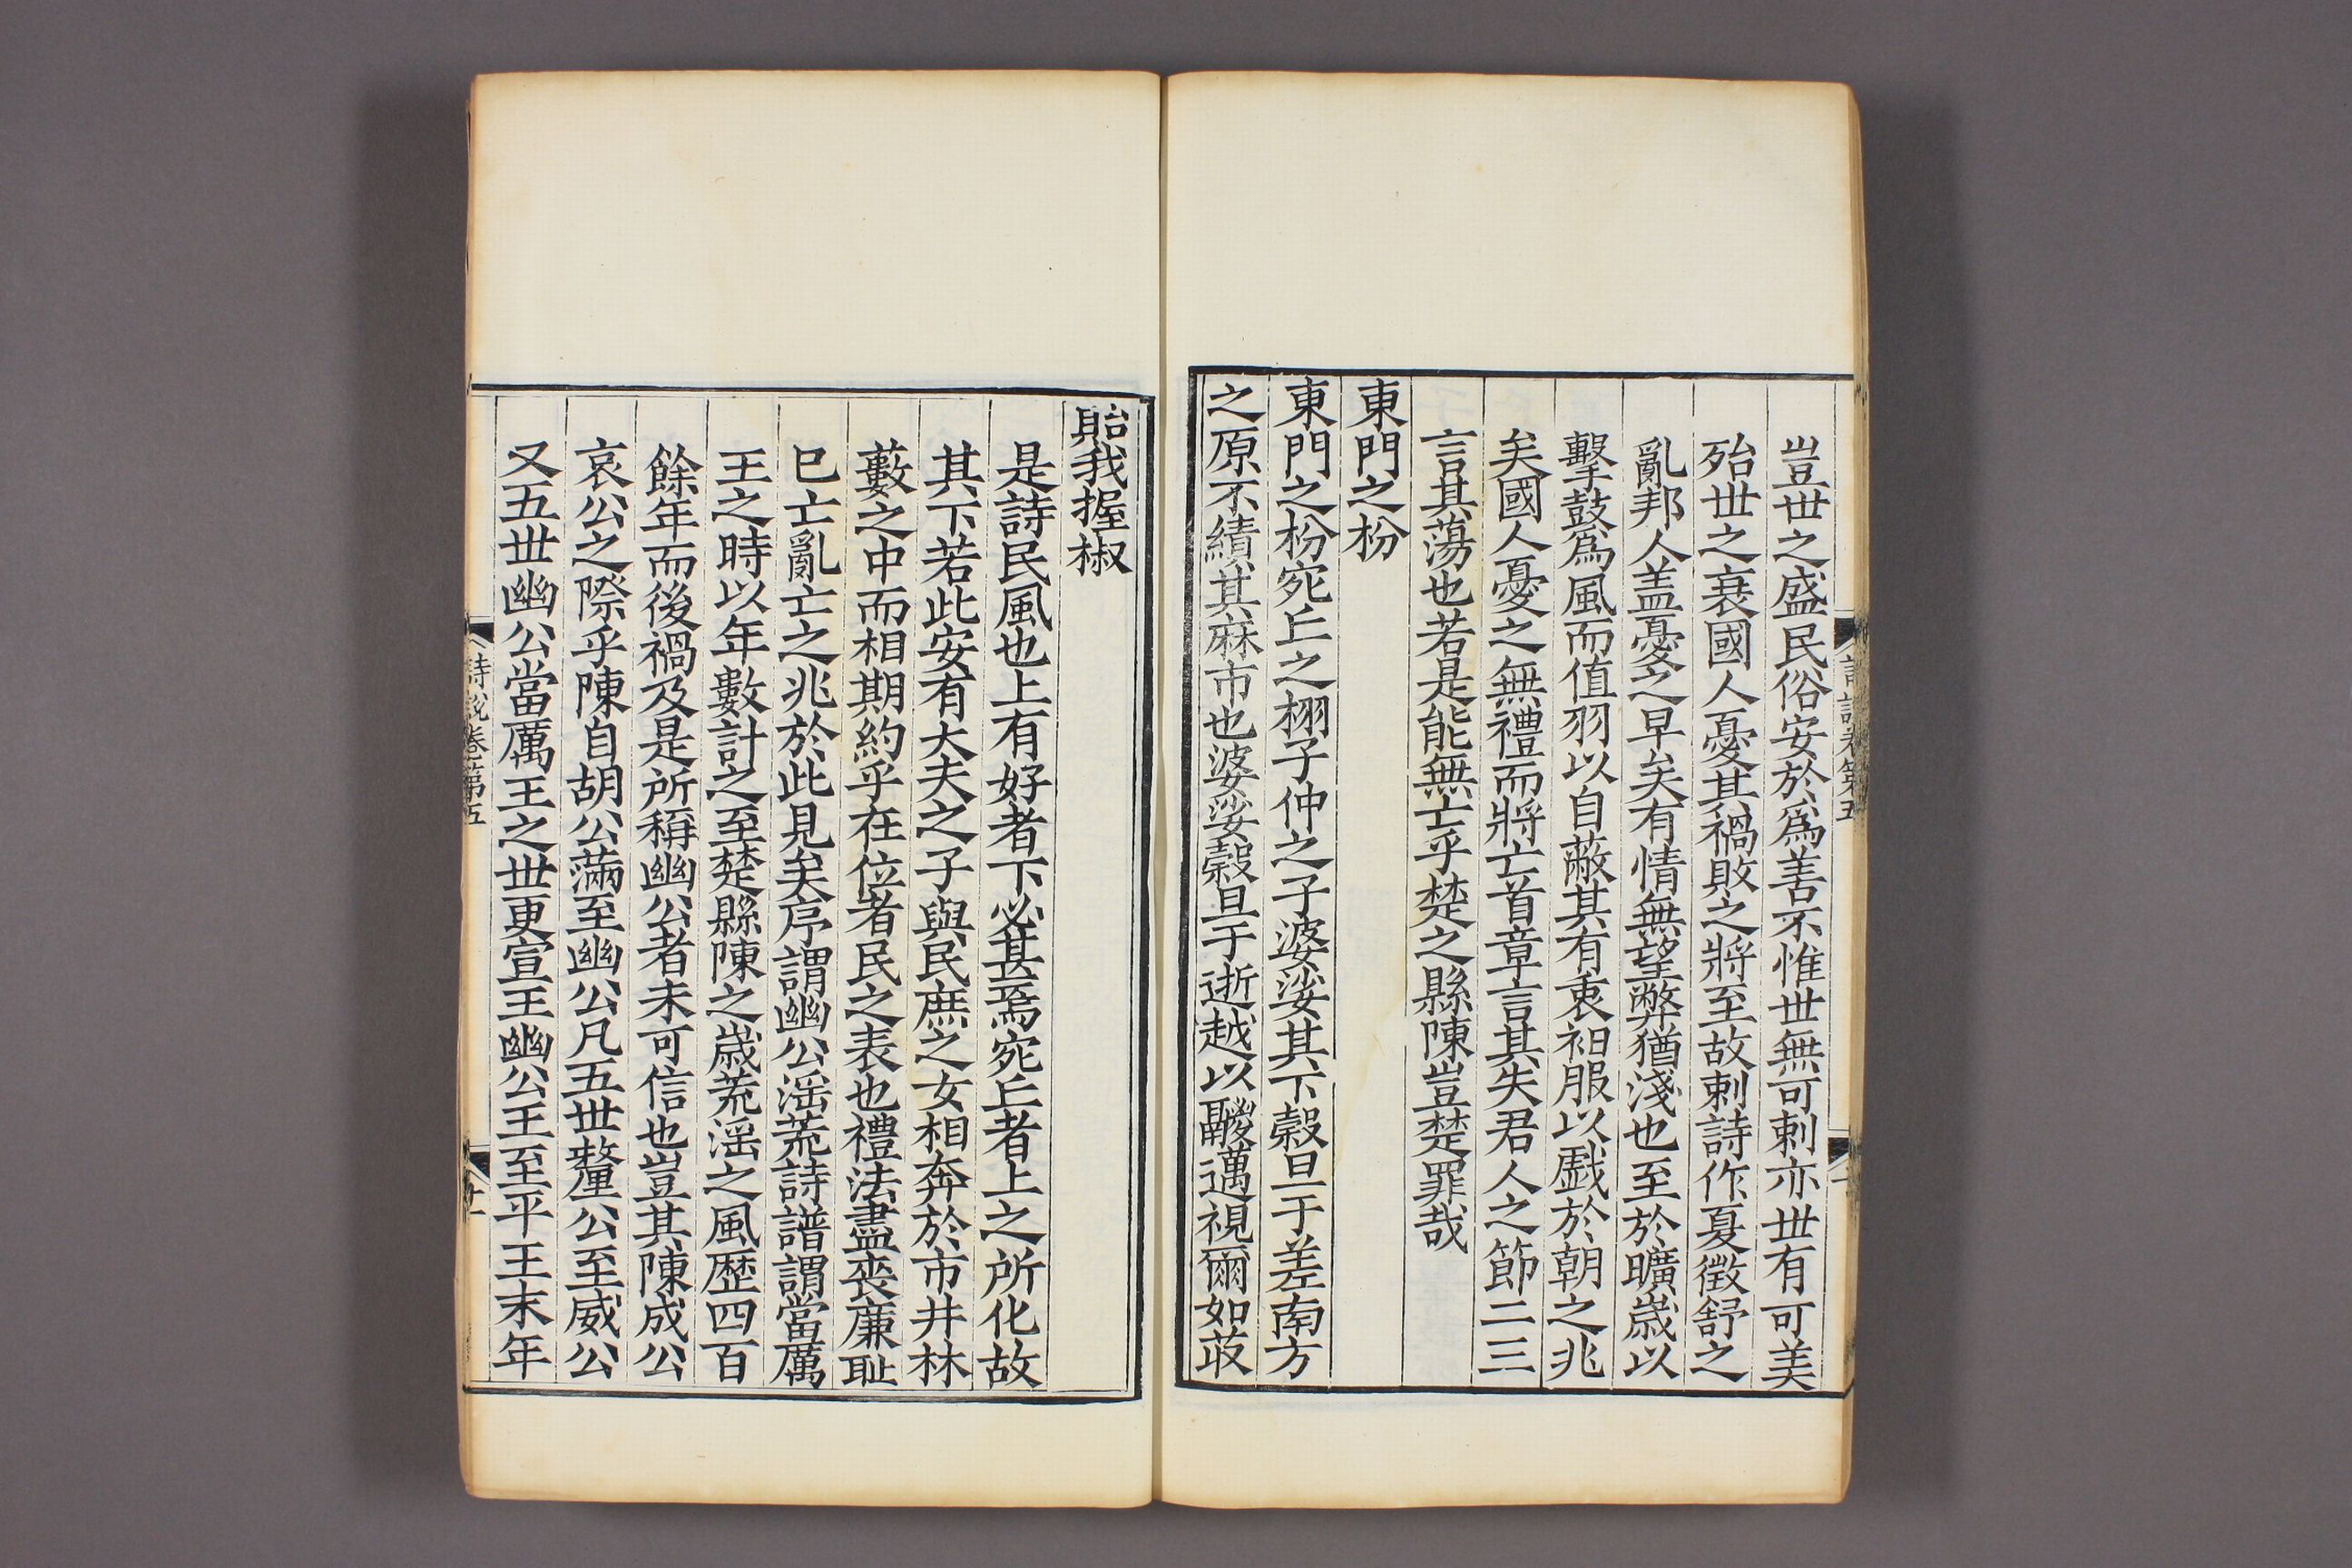 豈丗之盛民俗安於爲善不惟丗無可刺亦丗有可美
殆丗之衰國人憂其禍敗之將至故刺詩作夏徵舒之
亂邦人盖憂之早矣有情無望弊猶淺也至於曠歲以
擊鼓爲風而值羽以自蔽其有衷衵服以戲於朝之兆
矣國人憂之無禮而將亡首章言其失君人之節二三
言其蕩也若是能無亡乎楚之縣陳豈楚罪哉
東門之枌
東門之枌宛丘之栩子仲之子婆娑其下穀旦于差南方
之原不績其麻市也婆娑穀旦于逝越以鬷邁視爾如荍
詩說卷第五
貽我握椒
是詩民風也上有好者下必甚焉宛丘者上之所化故
其下若此安有大夫之子與民庶之女相奔於市井林
藪之中而相期約乎在位者民之表也禮法盡喪廉耻
已亡亂亡之兆於此見矣序謂幽公滛荒詩譜謂當厲
王之時以年數計之至楚縣陳之歲荒滛之風歴四百
餘年而後禍及是所稱幽公者未可信也豈其陳成公
哀公之際乎陳自胡公滿至幽公凡五丗釐公至威公
又五丗幽公當厲王之丗更宣王幽公王至平王末年
詩說卷第五
十一